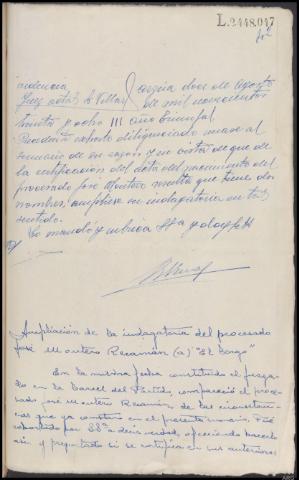 L.2448.047
Juez actal A Villar
de mil novecientos
treinta y ocho III año triunfal
exhorto diligenciado unase al
sumario de su razon y en vista de que de
la certificacion del acta del nacimiento del
procesado José Montero resulta que tiene dos
nombres, ampliese su indagatoria en tal
sentido.
Lo mandó y rubrica Sª y doy fe
Ampliación de la indagatoria del procesado
José Montero Recamán (a) "El
En la misma fecha constituido el juzga-
do en la Carcel del Partido, compareció el proce-
sado José Montero Recamán de las circunstan-
cias que ya constan en el presente sumario. Fué
exhortado por SSª a decir verdad, ofreciendo hacerlo
asi y preguntado si se ratifica en sus anteriores